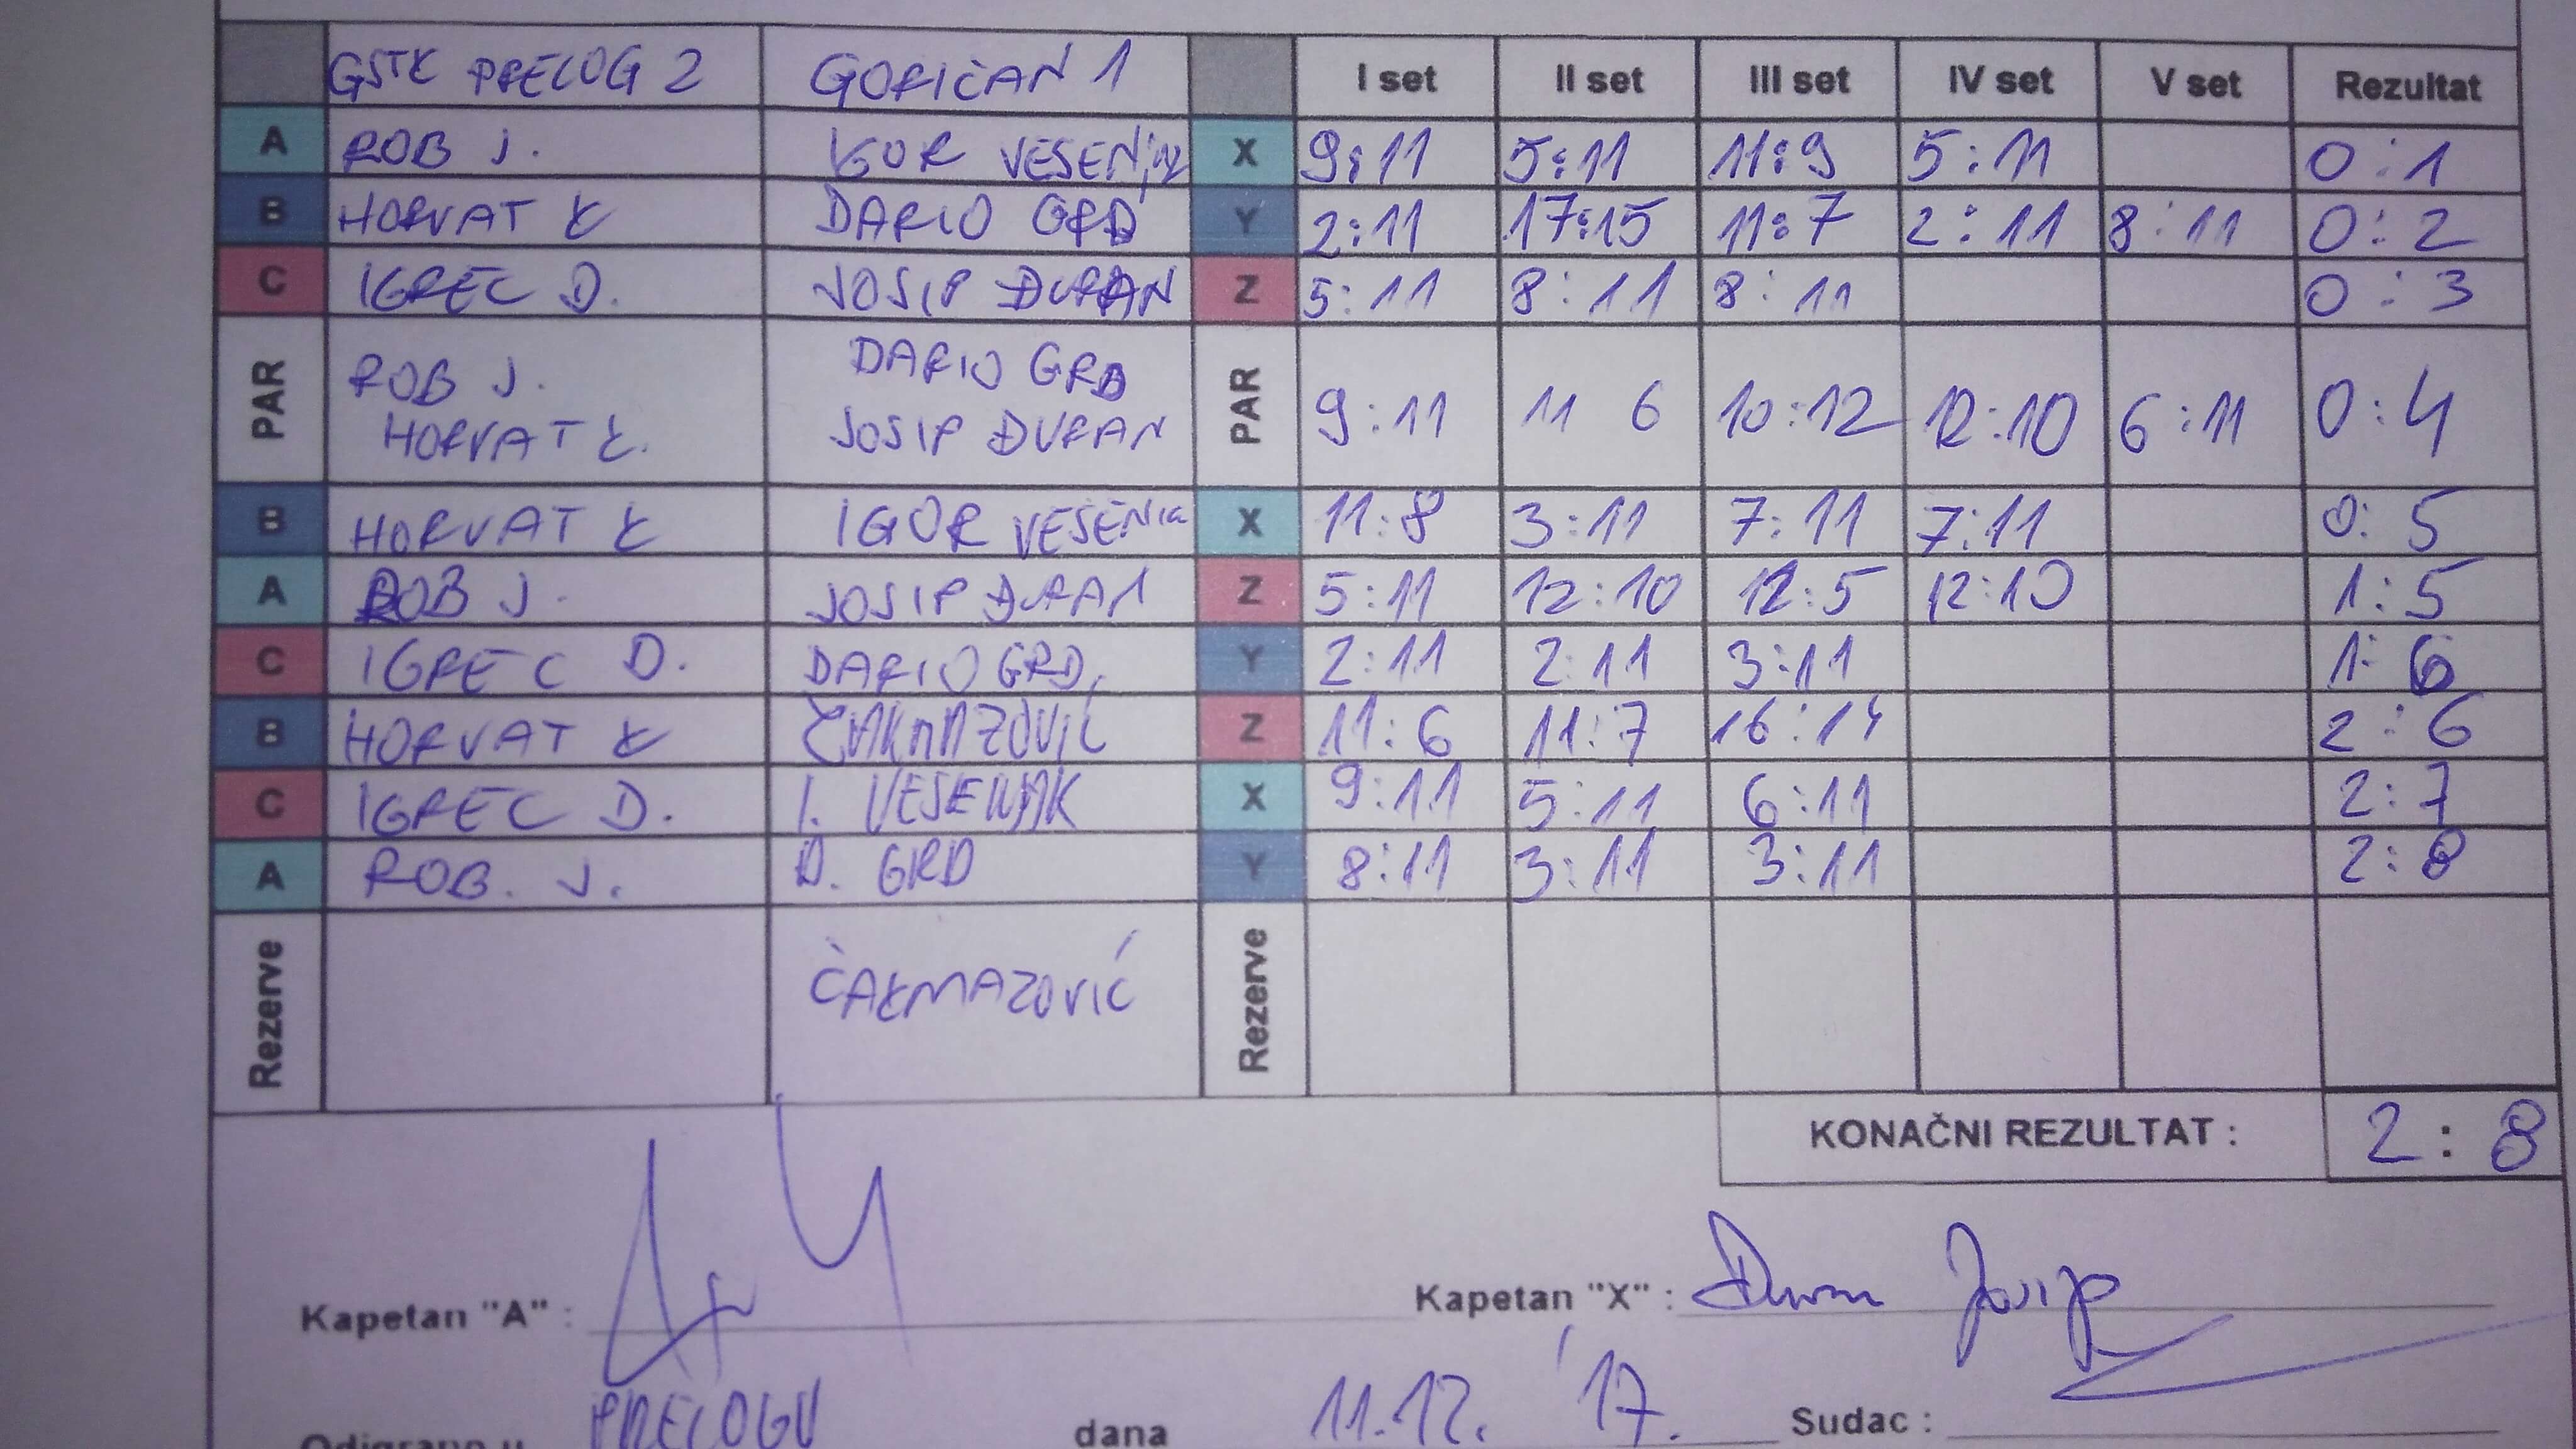 GSTK PRELOG 2 GORIČAN 1 I set II set III set IV set V set Rezultat
A ROB J. IGOR VESENJAK X 9:11 5:11 11:9 5:11 0:1
B HORVAT K DARIO GRD Y 2:11 17:15 11:7 2:11 8:11 0:2
C IGREC D. JOSIP ĐURAN Z 5:11 8:11 8:11 0:3
PAR ROB J. DARIO GRD PAR 9:11 11 6 10:12 12:10 6:11 0:4
HORVAT K. JOSIP ĐURAN
B HORVAT K IGOR X 11:8 3:11 7:11 7:11 0:5
A ROB J. JOSIP ĐURAN Z 5:11 12:10 12:5 12:10 1:5
C IGREC D. DARIO GRD, Y 2:11 2:11 3:11 1:6
B HORVAT K ČAKMAZOVIĆ Z 11:6 11:7 16:14 2:6
C IGREC D. I. VESENJAK X 9:11 5:11 6:11 2:7
A ROB. J. D. GRD Y 8:11 3:11 3:11 2:8
Rezerve ČAKMAZOVIĆ Rezerve
KONAČNI REZULTAT : 2:8
Kapetan "A" : Kapetan "X" : Đuran Josip
Odigrano u PRELOGU dana 11.12. '17. Sudac :